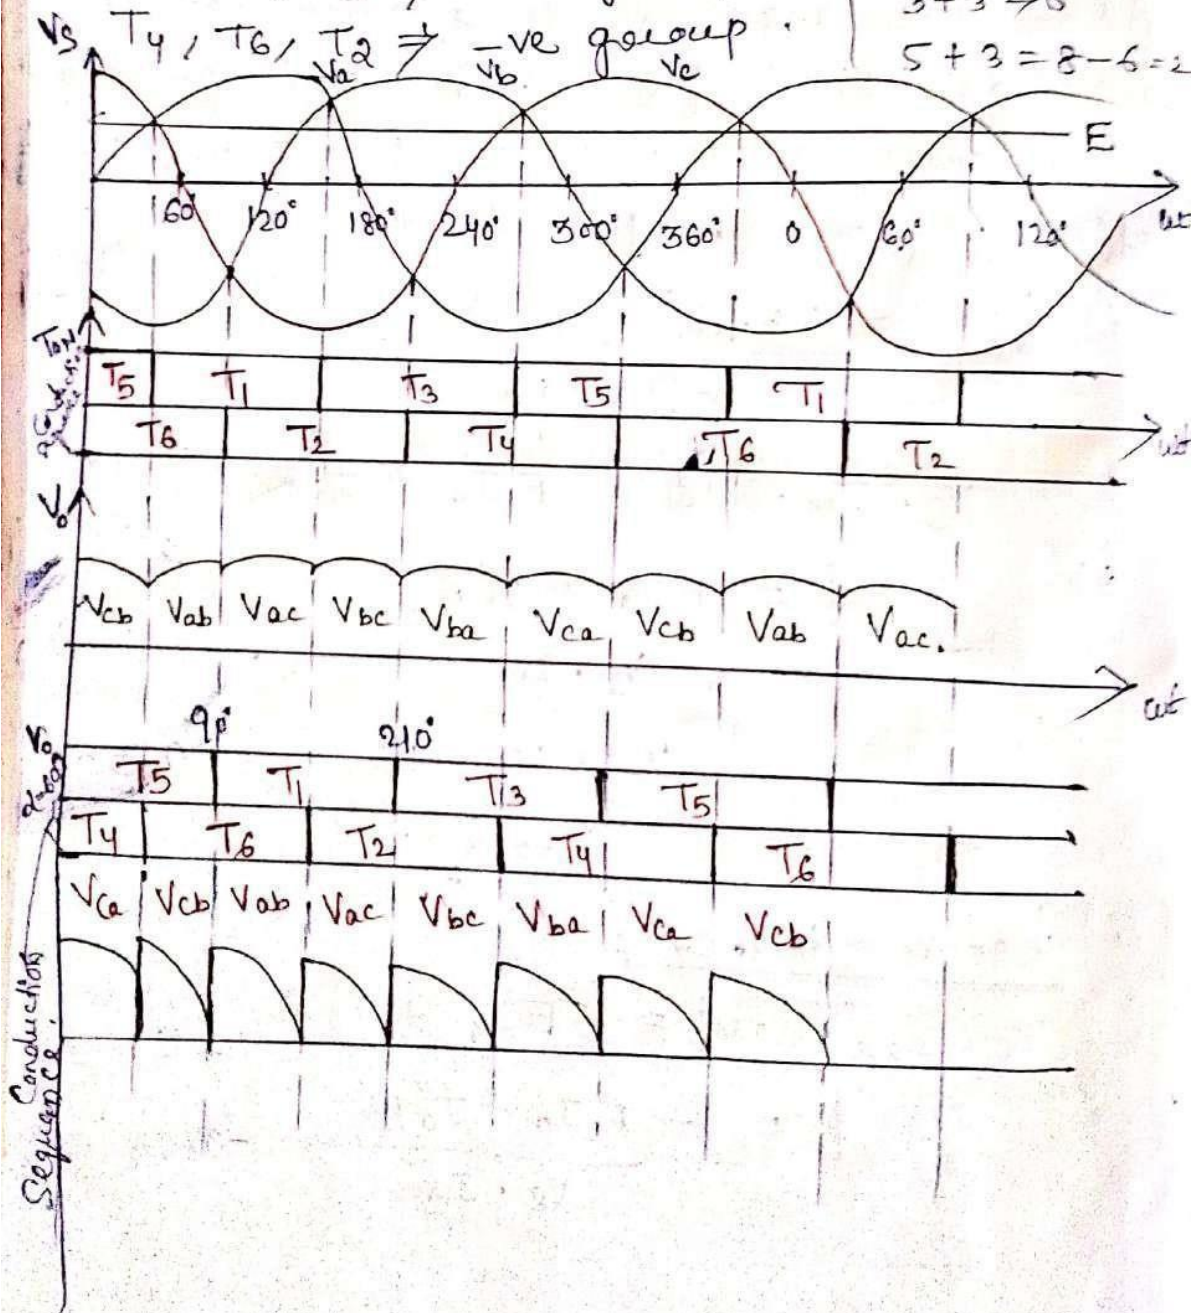 T4, T6, T2 ⇒ -ve group.
5 + 3 = 8 - 6 = 2
Vs
Va Vb Vc
E
60° 120° 180° 240° 300° 360° 0 60° 120° ωt
T5 T1 T3 T5 T1
T6 T2 T4 T6 T2
ωt
Vo
Vcb Vab Vac Vbc Vba Vca Vcb Vab Vac.
ωt
90° 210°
Vo
T5 T1 T3 T5
T4 T6 T2 T4 T6
Vca Vcb Vab Vac Vbc Vba Vca Vcb
Conduction
Sequence.